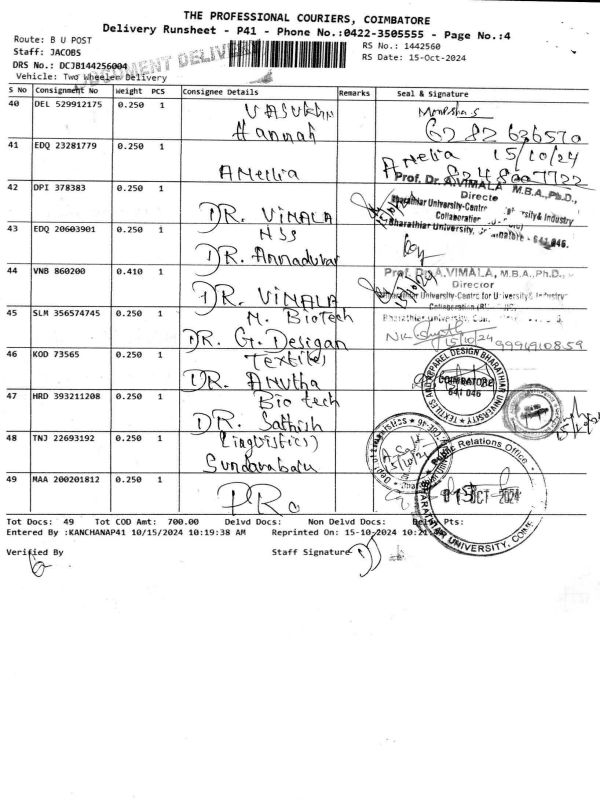 THE PROFESSIONAL COURIERS, COIMBATORE
Delivery Runsheet - P41 - Phone No.:0422-3505555 - Page No.:4
Route: B U POST
RS No.: 1442560
Staff: JACOBS
RS Date: 15-Oct-2024
DRS No.: DCJB144256004
DOCUMENT DELIVERY
Vehicle: Two Wheeler Delivery
S No Consignment No Weight PCS Consignee Details Remarks Seal & Signature
40 DEL 529912175 0.250 1
Hannah
41 EDQ 23281779 0.250 1 Amelia
Amelia 15/10/24
42 DPI 378383 0.250 1 DR. VIMALA
Prof. Dr. A.VIMALA, M.B.A., Ph.D.,
Bharathiar University-Centre
University & Industry
Bharathiar University,
641 046.
43 EDQ 20603901 0.250 1 NSS
DR. Annadurai
44 VNB 860200 0.410 1 DR. VIMALA
Prof. Dr. A.VIMALA, M.B.A., Ph.D.,
Director
Bharathiar University-Centre for University & Industry
45 SLM 356574745 0.250 1 M. BioTech
DR. G. Desigan
15/10/24 9994910859
46 KOD 73565 0.250 1 Textiles
DR. Anutha
TEXTILES AND APPAREL DESIGN BHARATHIAR UNIVERSITY
COIMBATORE
641 046
47 HRD 393211208 0.250 1 Bio tech
DR. Sathish
48 TNJ 22693192 0.250 1 (Linguistics)
Sundarabalu
49 MAA 200201812 0.250 1 PRO
Public Relations Office
OCT 2024
BHARATHIAR UNIVERSITY,
Tot Docs: 49 Tot COD Amt: 700.00 Delvd Docs: Non Delvd Docs: Delvd Pts:
Entered By :KANCHANAP41 10/15/2024 10:19:38 AM Reprinted On: 15-10-2024
Verified By Staff Signature